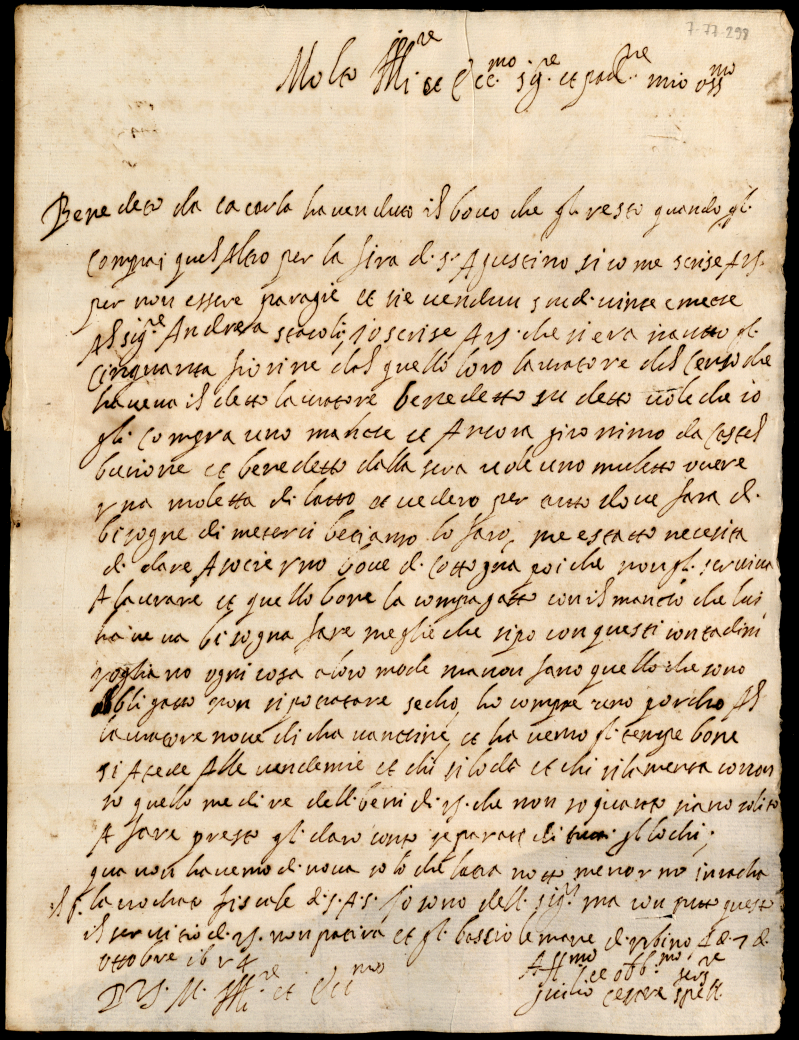 7-77-298
Molto Ill.re et Ecc.mo sig.re et pad.ne mio oss.mo
Benedeto da ca carla ha venduto il bovo che gli resto quando gli
Comprai quel Altro per la fira di s.to Agustino si come scrise A V.S.
per non essere paragie et sie venduti scudi vinte e mecce
Al sig.re Andrea stacoli, io scrise A V.S. che si era inautto gli
Cinquanta fiorine dal quello loro lavuratore del Cerso che
haveva il detto lavuratore benedetto su detto vole che io
gli Compra uno mance et Ancora gironimo da Castel
bucione et benedetto dalla sera vole uno muletto overe
una moletta di latto et vedero per tutto dove sara di
bisogne di meterci betiamo lo faro, me estatto necesita
di dare A socie uno bove di Cottogna poi che non gli serviva
A lavurare et quello bove la compagatto con il mancio che lui
haveva bisogna fare meglie che si po con questi contadini
vogliano ogni cosa a loro mode ma non fano quello che sono
obligatto non si po tratare secho, ho compre uno porcho Al
lavuratore nove di cha vancine, et havemo gli tempe bone
si Atede Alle vendemie et chi si loda et chi si lamenta
io quello me dire delli beni di V.S. che non so quanto siano solito
A fare presto gli daro conto separati di tutti gli lochi,
qua non havemo di nova solo che latra notto menorno in rocha
il s. lavochato fiscale di S.A.S. Io sono delli sig.ri ma con tutto questo
il servitio di V.S. non pativa et gli bascio le mane di Urbino li di 7 di
ottobre 16
D V.S. M. Ill.re et Ecc.mo
Aff.mo et obb.mo ser.re
Julio Cesare